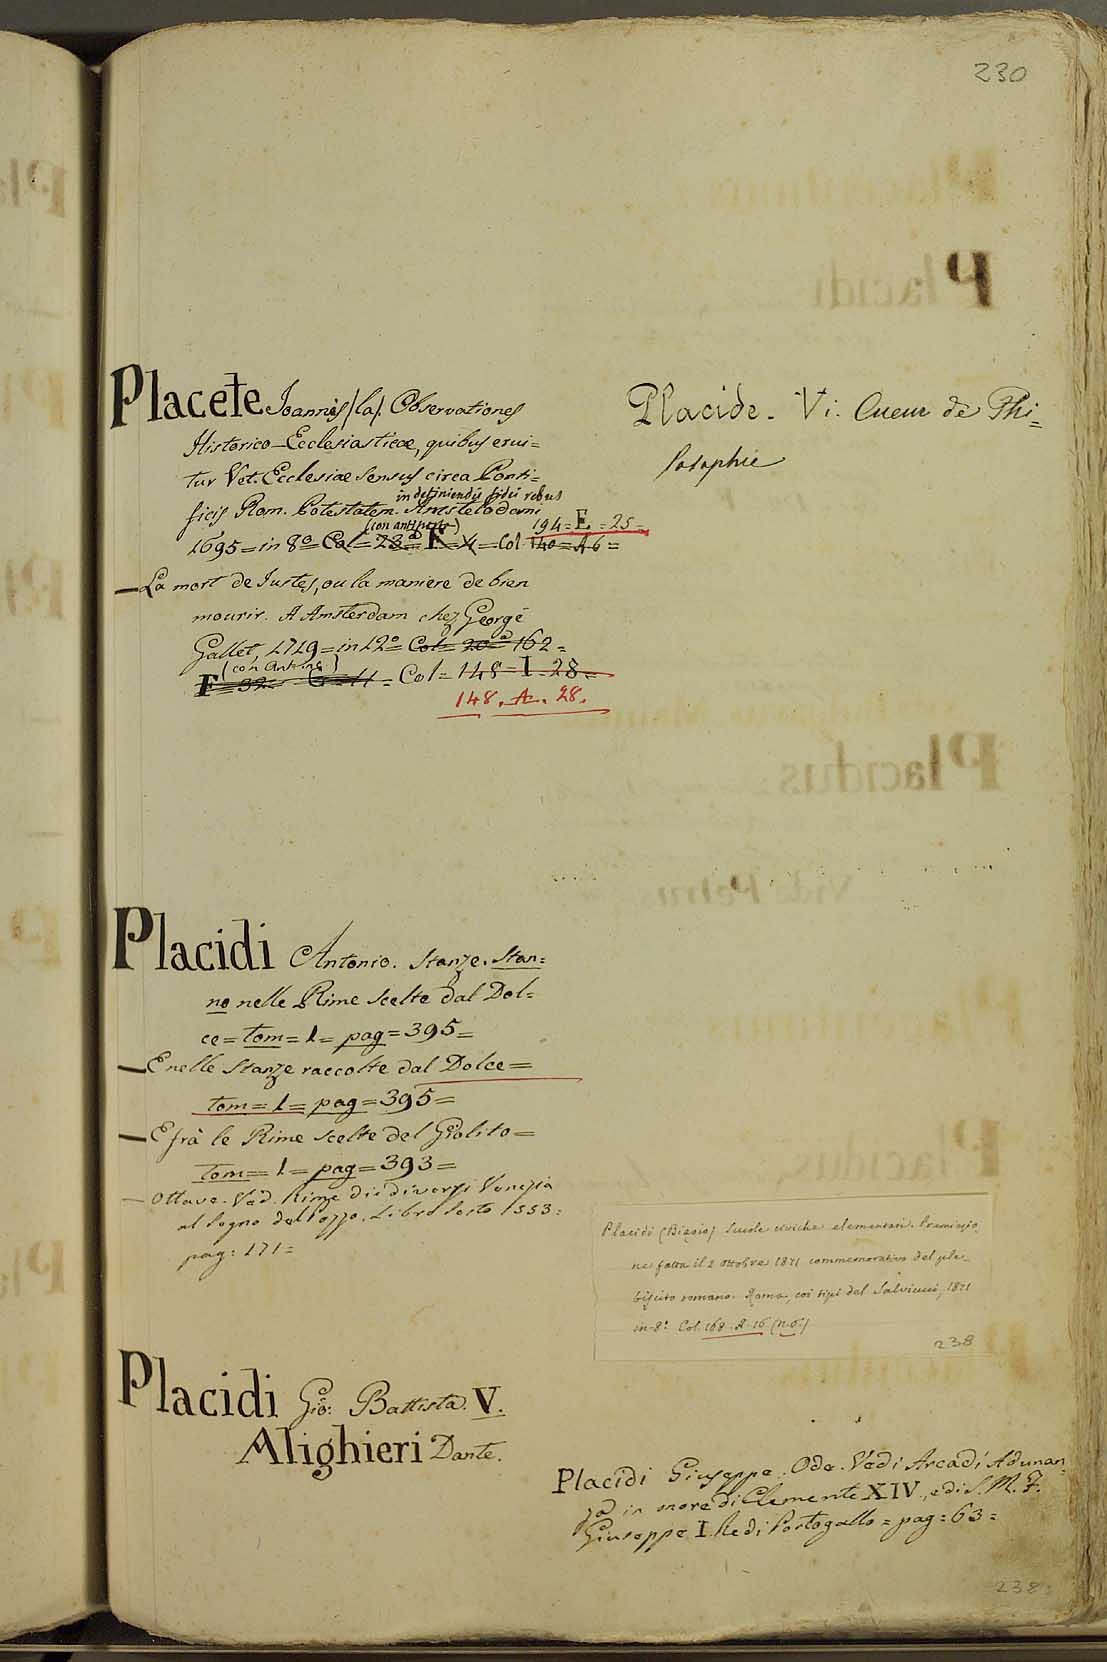 230
Placete Joannis (la). Observationes
Historico-Ecclesiasticae, quibus erui=
tur Vet. Ecclesiae Sensus circa Ponti=
ficis Rom. Potestatem in definiendis fidei rebus. Amstelodami
1695=in 8º= Col= 28ª= F. 4=Col. 140= A6=
(con antiporta)
194=E=25=
—La mort de Justes, ou la maniere de bien
mourir. A Amsterdam chez George
Gallet 1719=in 12º Col= 20ª 162=
(con Antipª)
F=32= G=11= Col= 148=I=28=
148. A. 28.
Placide. Vi. Cueur de Phi=
losophie
Placidi Antonio. Stanze. Stan=
no nelle Rime scelte dal Dol=
ce=tom=1=pag=395=
—E nelle Stanze raccolte dal Dolce=
tom=1=pag=395=
—E frà le Rime scelte del Giolito=
tom=1=pag=393=
—Ottave. Ved. Rime di diversi Venezia
al Segno del Pozzo. Libro Sesto 1553:
pag: 171=
Placidi Gio: Battista. V.
Alighieri Dante.
Placidi (Biagio) Scuole civiche elementari. Premiazio
ne fatta il 2 ottobre 1871 commemorativo del ple_
biscito romano. Roma, coi tipi del Salviucci, 1871
in-8º Col. 168. A. 16 (n. 6.)
238
Placidi Giuseppe. Oda. Vedi Arcadi Adunan
za in onore di Clemente XIV., e di S. M. F.
Giuseppe I. Re di Portogallo=pag: 63=
238